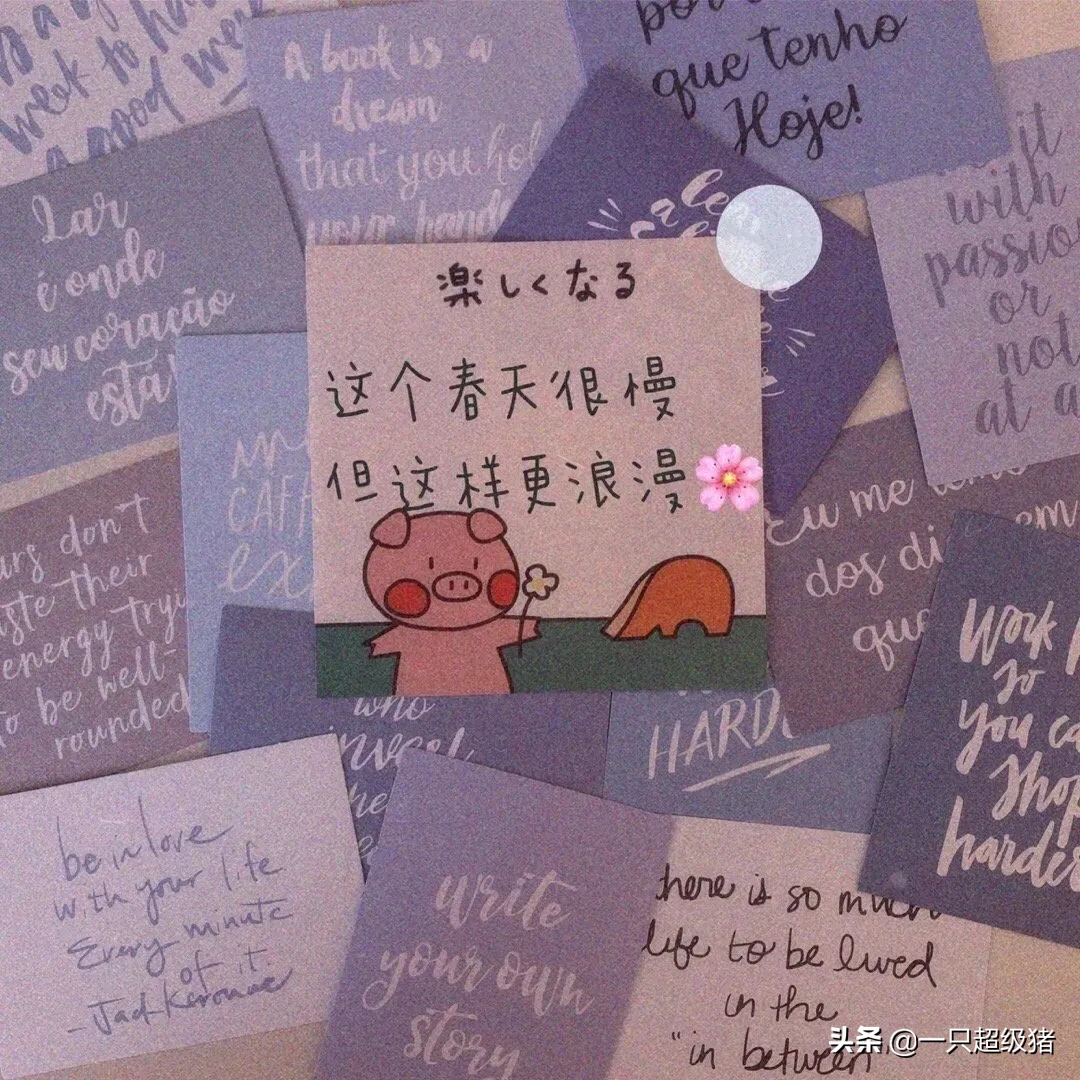 week to ha
a good we
A book is a
dream
that you hol
your hand
que tenho
Hoje!
with
passio
or
not
at a
Lar
é onde
seu coração
está!
楽しくなる
这个春天很慢
但这样更浪漫🌸
CAFF
ex
urs don't
aste their
energy tryi
to be well-
rounded
Eu me
dos di
que
em
Work h
so
you ca
Shop
harder
who
invest
he
HARD
be in love
with your life
Every minute
of it.
-Jack Kerouac
write
your own
story
there is so much
life to be lived
in the
"in between
头条 @一只超级猪